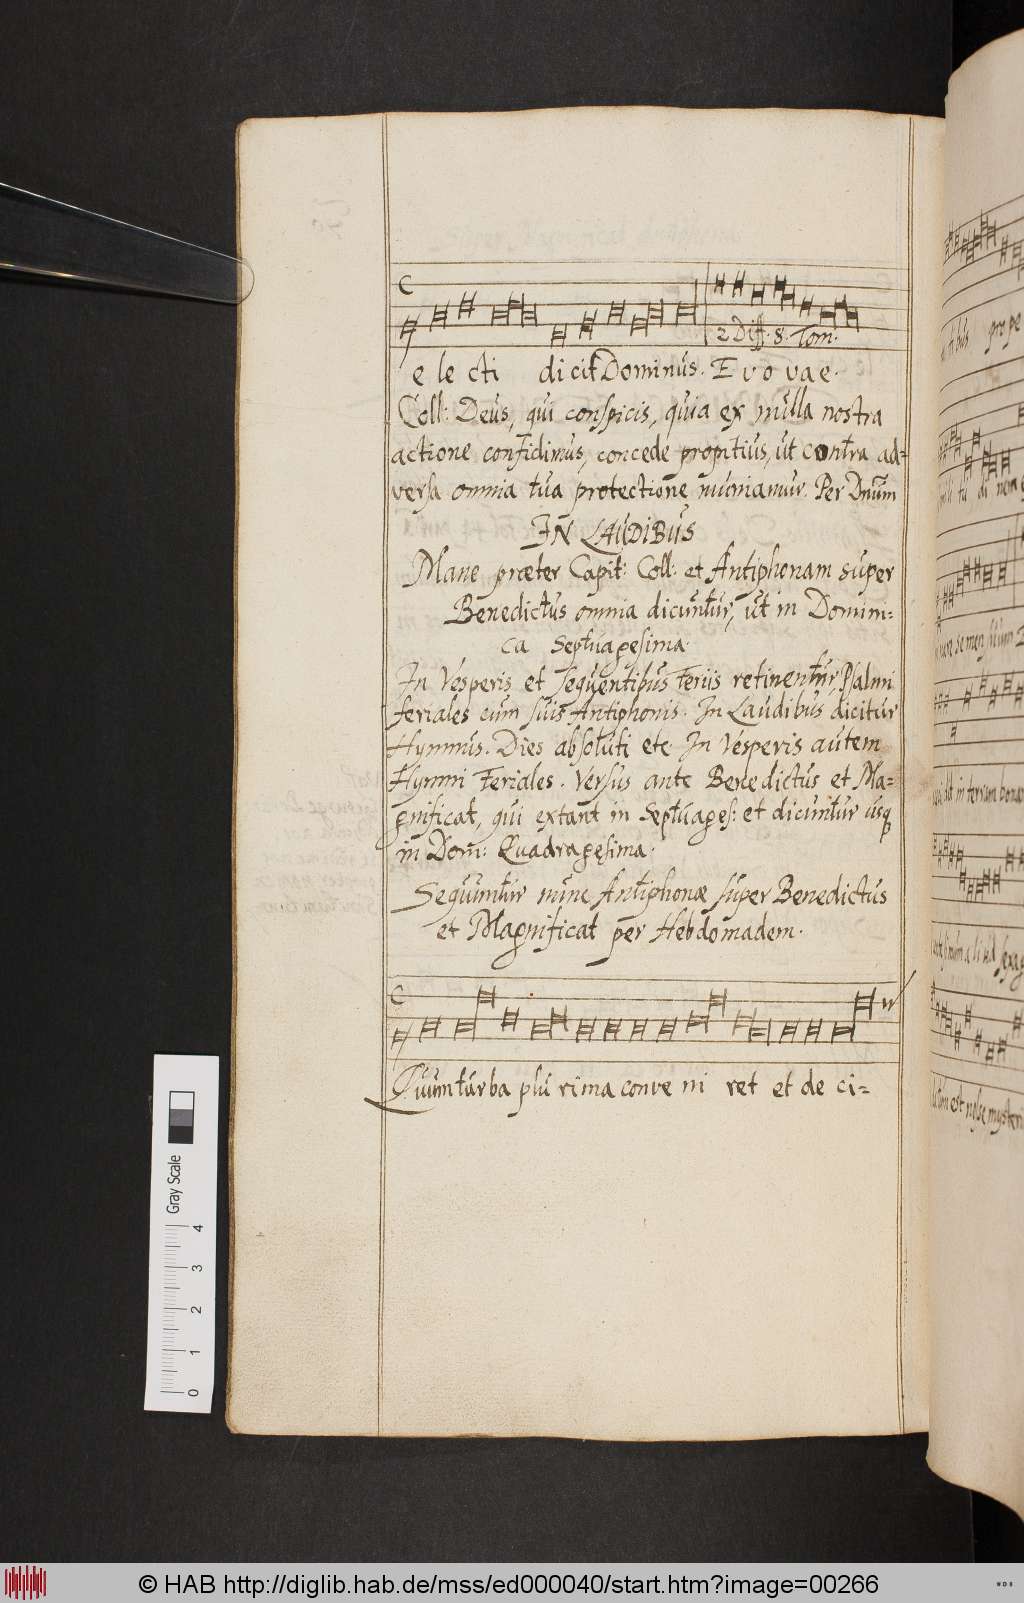 2 Diff. 8. Tom.
e le cti dicit Dominus. E v o v a e.
Coll: Deus, qui conspicis, quia ex nulla nostra
actione confidimus, concede propitius, ut contra ad=
versa omnia tua protectione muniamur. Per Dnum
IN LAUDIBUS
Mane præter Capit: Coll: et Antiphonam super
Benedictus omnia dicuntur, ut in Domini=
ca Septuagesima.
In Vesperis et sequentibus feriis retinentur Psalmi
feriales cum suis Antiphonis. In Laudibus dicitur
Hymnus. Dies absoluti etc In Vesperis autem
Hymni Feriales. Versus ante Benedictus et Ma=
gnificat, qui extant in Septuages: et dicuntur usq
in Dom: Quadragesima.
Sequuntur nunc Antiphonæ super Benedictus
et Magnificat per Hebdomadem.
Quum turba plu rima conve ni ret et de ci=
Gray Scale
0 1 2 3 4
© HAB http://diglib.hab.de/mss/ed000040/start.htm?image=00266